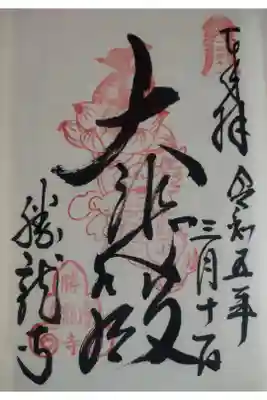 奉拝
令和五年
三月十一日
大悲殿
勝龍寺